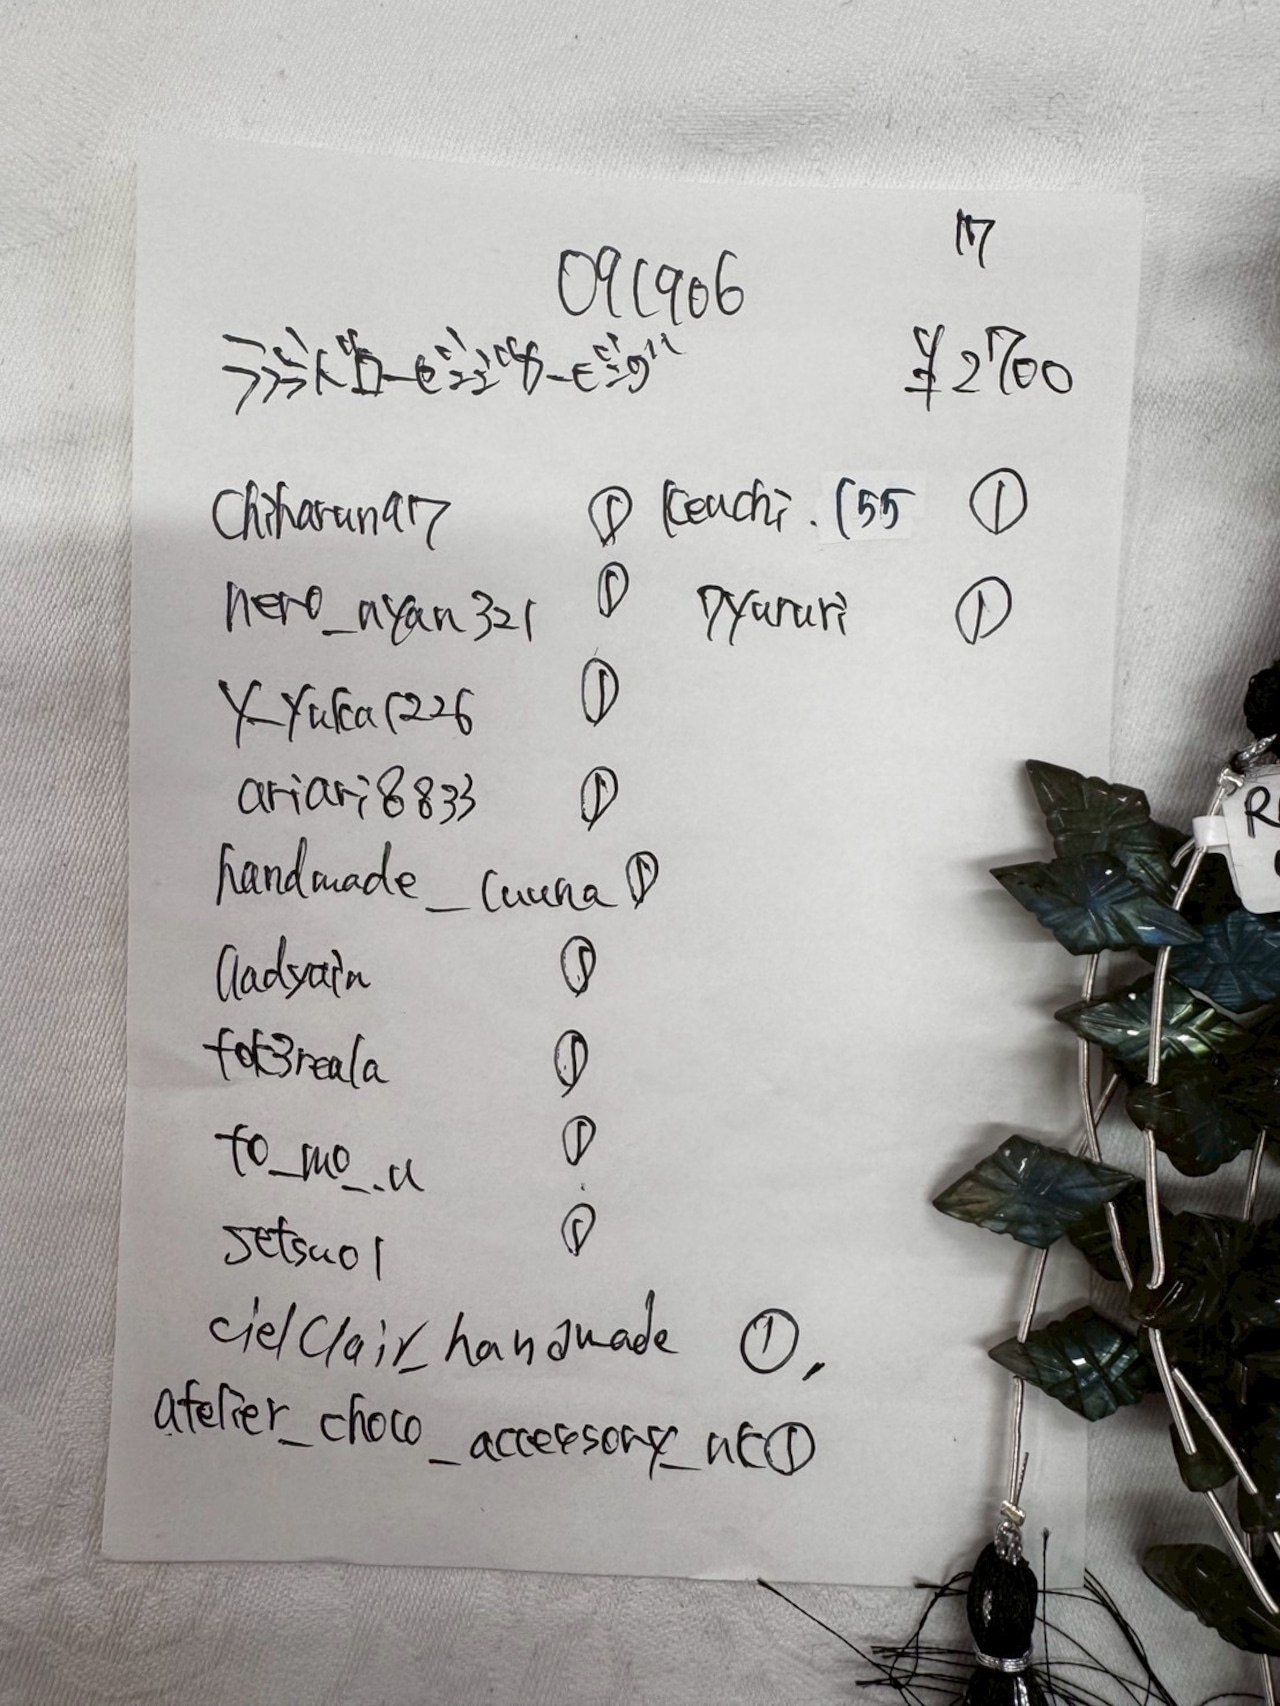 17
091906
¥2700
Chiharun97 ①
Keuchi.155 ①
nero_nyan321 ①
7yururi ①
y_yuka1226 ①
ariari8833 ①
handmade_luuna ①
ladyain ①
tot3reala ①
to_mo_.u ①
setsuo1 ①
cielclair_handmade ①,
atelier_choco_accessory_nk ①
R